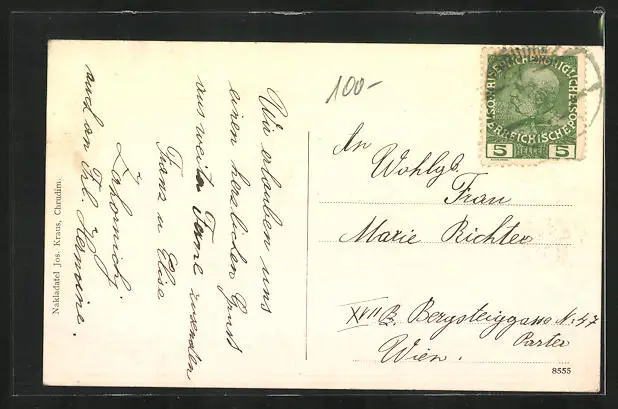 100-
KAIS. KÖNIGLICHE ÖSTERREICHISCHE POST
5 HELLER 5
An
Wohlgb.
Frau
Marie Richter
XVII B. Bergsteiggasse N: 47
Parter
Wien.
Wir erlauben uns
einen herzlichen Gruss
aus weiter Ferne zu senden
Franz u. Elise
auch an Frl. Hermine.
Nakladatel Jos. Kraus, Chrudim.
8555